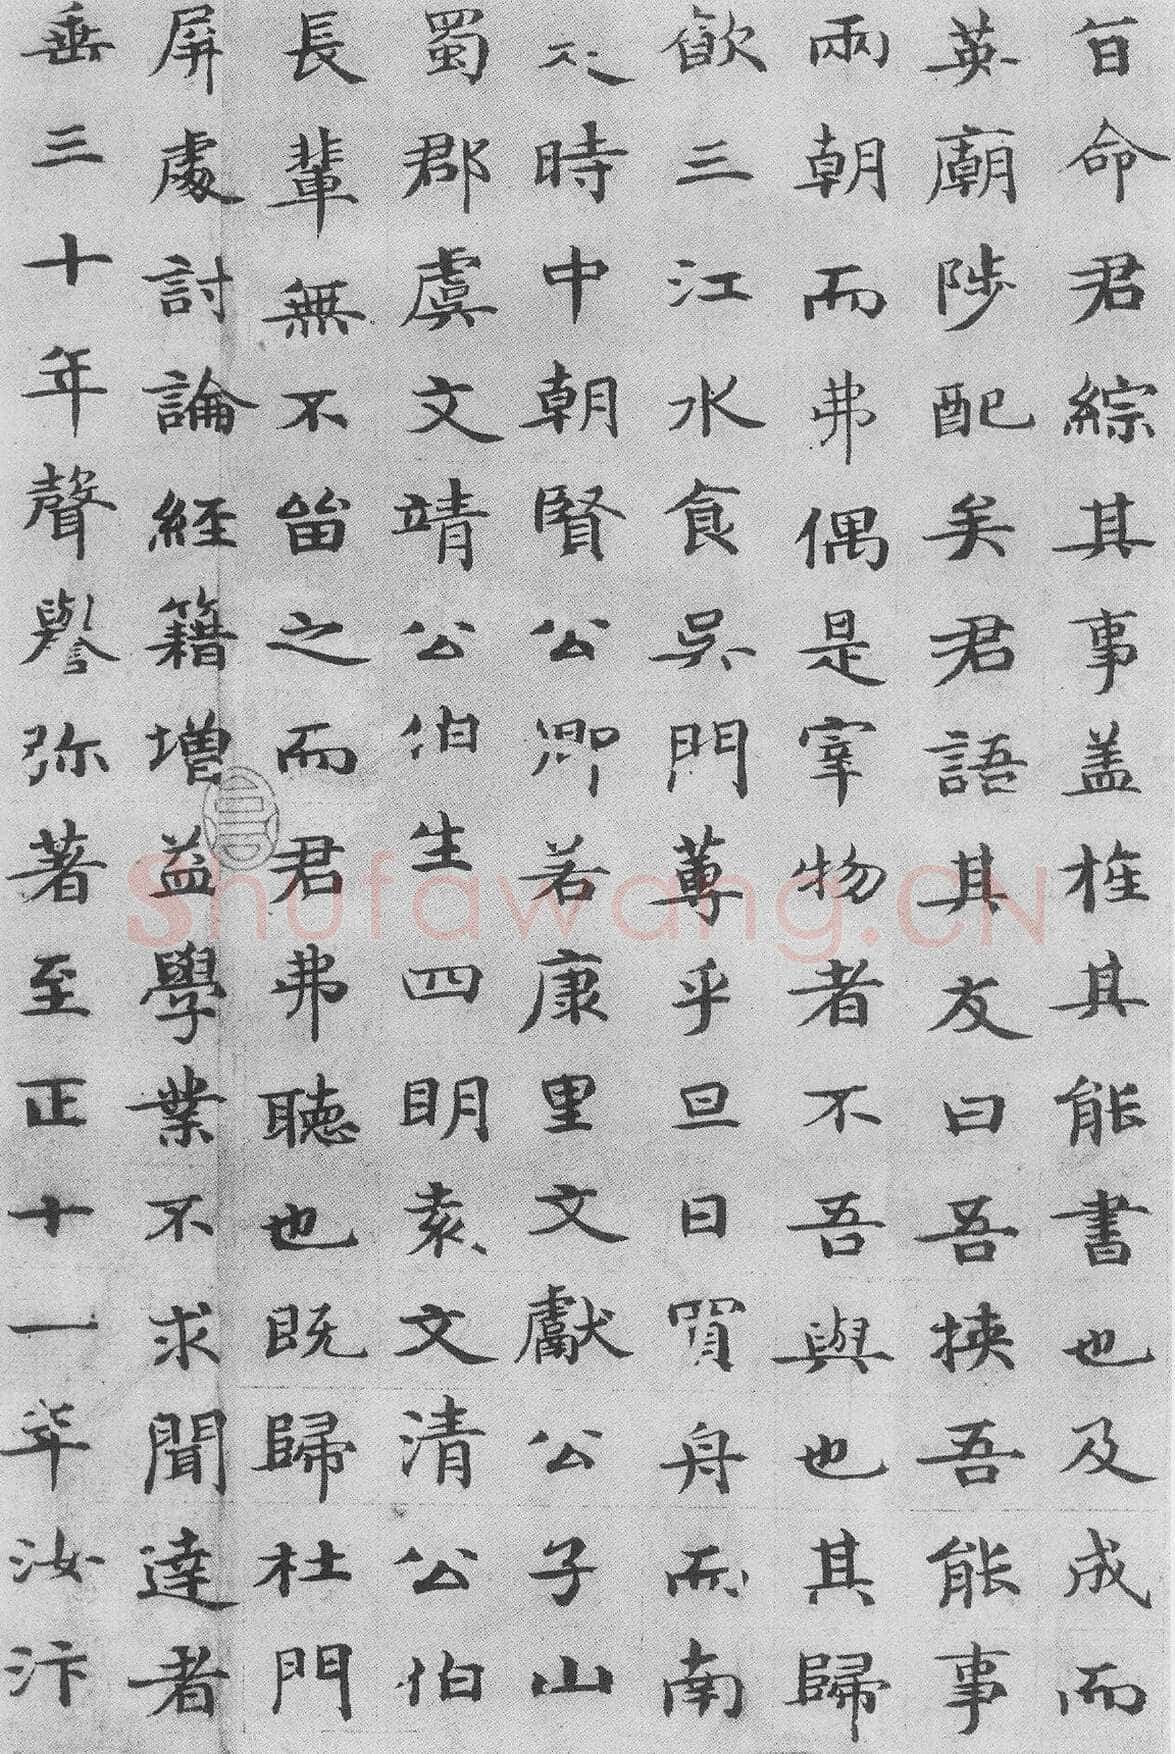 旨命君綜其事盖旌其能書也及成而
英廟陟配矣君語其友曰吾挟吾能事
兩朝而弗偶是宰物者不吾與也其歸
歟三江水食吳門蓴乎旦日買舟而南
之時中朝賢公卿若康里文獻公子山
蜀郡虞文靖公伯生四明袁文清公伯
長輩無不畱之而君弗聽也既歸杜門
屏處討論經籍增益學業不求聞達者
垂三十年聲譽弥著至正十一年汝汴
Shufawang.CN